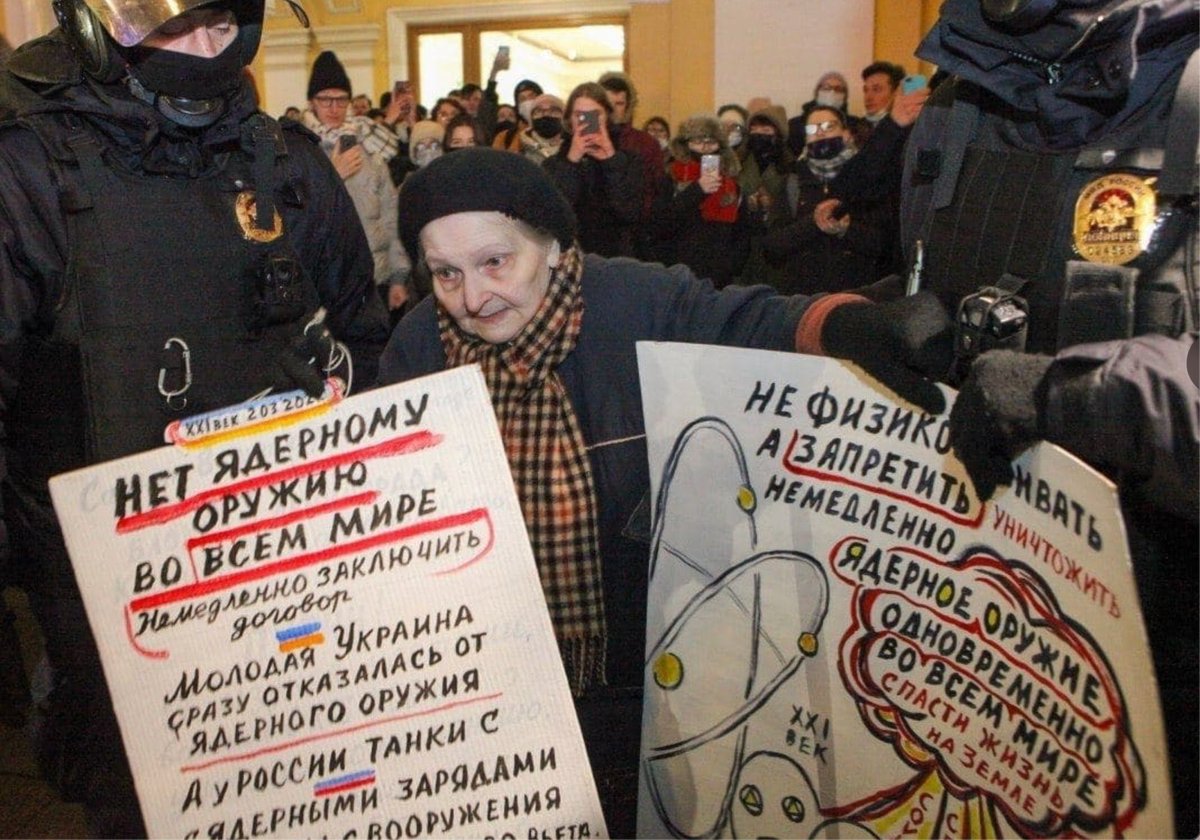 XXI ВЕК 2 03 202
НЕТ ЯДЕРНОМУ
ОРУЖИЮ
ВО ВСЕМ МИРЕ
НЕМЕДЛЕННО ЗАКЛЮЧИТЬ
ДОГОВОР
МОЛОДАЯ УКРАИНА
СРАЗУ ОТКАЗАЛАСЬ ОТ
ЯДЕРНОГО ОРУЖИЯ
А У РОССИИ ТАНКИ С
ЯДЕРНЫМИ ЗАРЯДАМИ
ВООРУЖЕНИЯ
НЕ ФИЗИКО
ИВАТЬ
А ЗАПРЕТИТЬ
УНИЧТОЖИТЬ
НЕМЕДЛЕННО
ЯДЕРНОЕ ОРУЖИЕ
ОДНОВРЕМЕННО
ВО ВСЕМ МИРЕ
СПАСТИ ЖИЗНЬ
НА ЗЕМЛЕ
XXI
ВЕК